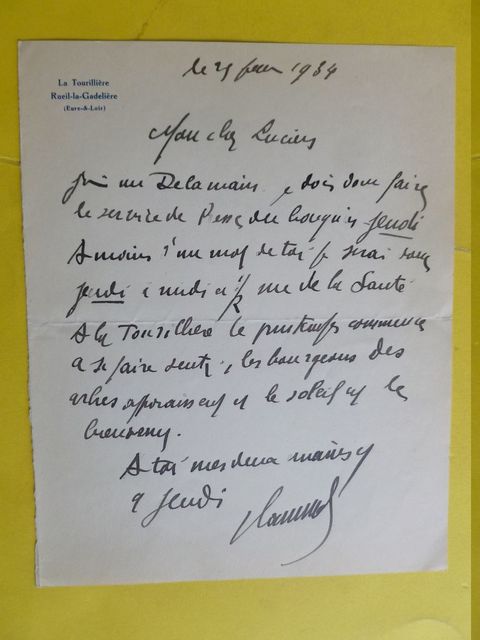 La Tourillière
Rueil-la-Gadelière
(Eure-&-Loir)
le 25 1934
Mon cher Lucien
J'ai vu Delamain. je dois donc faire
le service de Presse du bouquin jeudi
A moins d'un mot de toi je serai
jeudi à midi et 1/2 rue de la Santé
A la Tourillière le printemps commence
a se faire sentir, les bourgeons des
arbres apparaissent et le soleil et le

A toi mes deux mains et
a jeudi